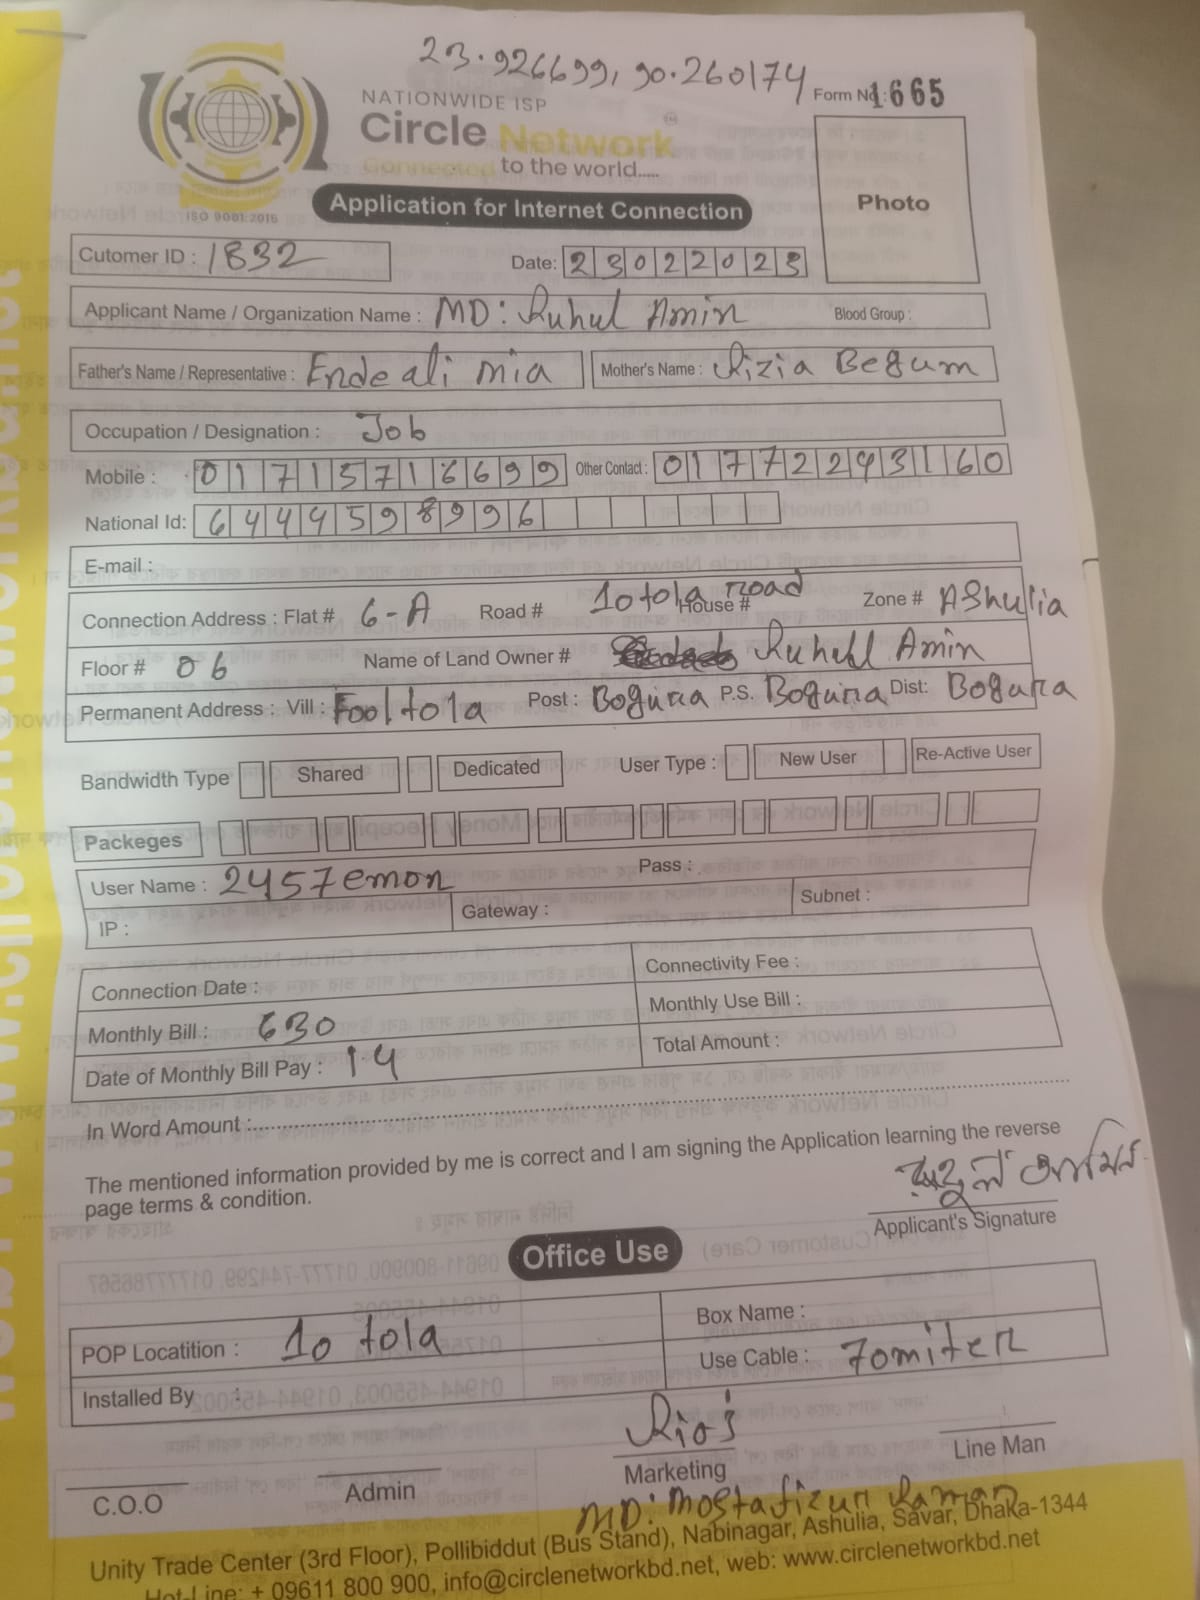 23.926699, 90.260174
Form No: 1665
NATIONWIDE ISP
Circle Network
Connected to the world.....
ISO 9001:2015
Application for Internet Connection
Photo
Cutomer ID : 1832
Date: 23022023
Applicant Name / Organization Name : MD: Ruhul Amin Blood Group :
Father's Name / Representative : Ende ali mia Mother's Name : Rizia Begum
Occupation / Designation : Job
Mobile : 01715716699 Other Contact : 01772243160
National Id: 6444598996
E-mail :
Connection Address : Flat # 6-A Road # 10 tola road House # Zone # AShulia
Floor # 06 Name of Land Owner # Ruhull Amin
Permanent Address : Vill : Fooltola Post : Bogura P.S. Bogura Dist: Bogura
Bandwidth Type Shared Dedicated User Type : New User Re-Active User
Packeges
User Name : 2457emon Pass :
IP : Gateway : Subnet :
Connection Date : Connectivity Fee :
Monthly Bill : 630 Monthly Use Bill :
Date of Monthly Bill Pay : 14 Total Amount :
In Word Amount :
The mentioned information provided by me is correct and I am signing the Application learning the reverse
page terms & condition.
রুহুল আমিন
Applicant's Signature
Office Use
POP Locatition : 10 tola Box Name :
Use Cable : 70miter
Installed By :
C.O.O Admin Marketing Line Man
MD: Mostafizur Raman
Unity Trade Center (3rd Floor), Pollibiddut (Bus Stand), Nabinagar, Ashulia, Savar, Dhaka-1344
Hot-Line: + 09611 800 900, info@circlenetworkbd.net, web: www.circlenetworkbd.net